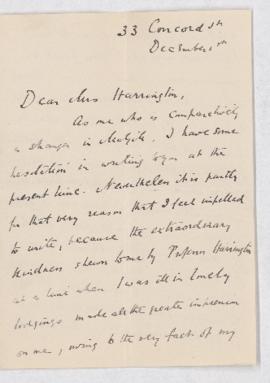 33 Concord St
December
Dear Mrs Harrington,
As one who is comparatively
a stranger in I have some
hesitation in writing to you at the
present time. Nevertheless it is partly
for that very reason that I feel impelled
to write, because the extraordinary
kindness shewn to me by Professor Harrington
at a time when I was ill in lonely
lodgings made all the greater impression
on me, owing to the very fact of my